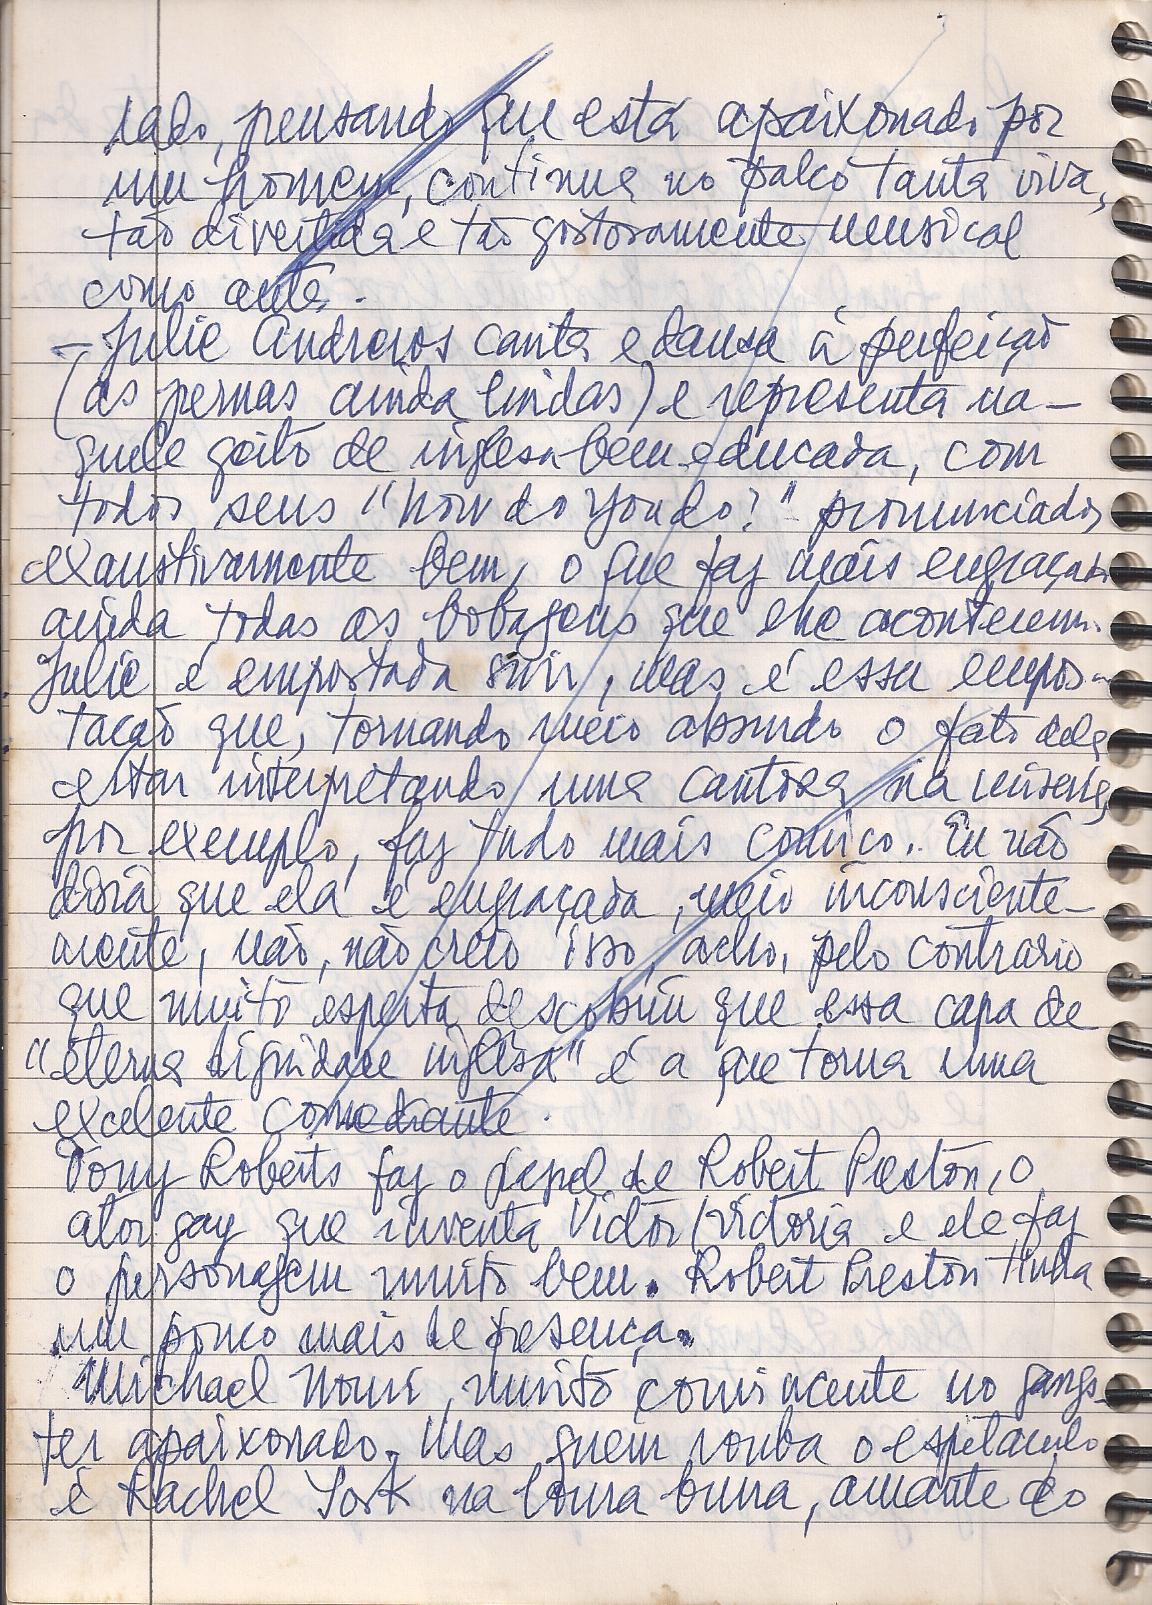 lado, pensando que está apaixonado por
um homem, continua no palco tanta viva,
tão divertida e tão gostosamente musical
como antes.
– Julie Andrews canta e dansa à perfeição
(as pernas ainda lindas) e representa na-
quele geito de inglesa bem educada, com
todos seus "how do you do?" pronunciados
exaustivamente bem, o que faz mais engraçado
ainda todas as bobagens que lhe acontecem.
Julie é empostada sim, mas é essa empos-
tação que, tornando meio absurdo o fato dela
estar interpretando uma cantora na miseria,
por exemplo, faz tudo mais comico. Eu não
diria que ela é engraçada, meio inconsciente-
mente, não, não creio isso, acho, pelo contrario
que muito esperta descobriu que essa capa de
"eterna dignidade inglesa" é a que torna uma
excelente comediante.
Tony Roberts faz o papel de Robert Preston, o
ator gay que inventa Victor/Victoria e ele faz
o personagem muito bem. Robert Preston tinha
um pouco mais de presença.
Michael Nouri, muito convincente no gangs-
ter apaixonado. Mas quem rouba o espetaculo
é Rachel York na loura burra, amante do